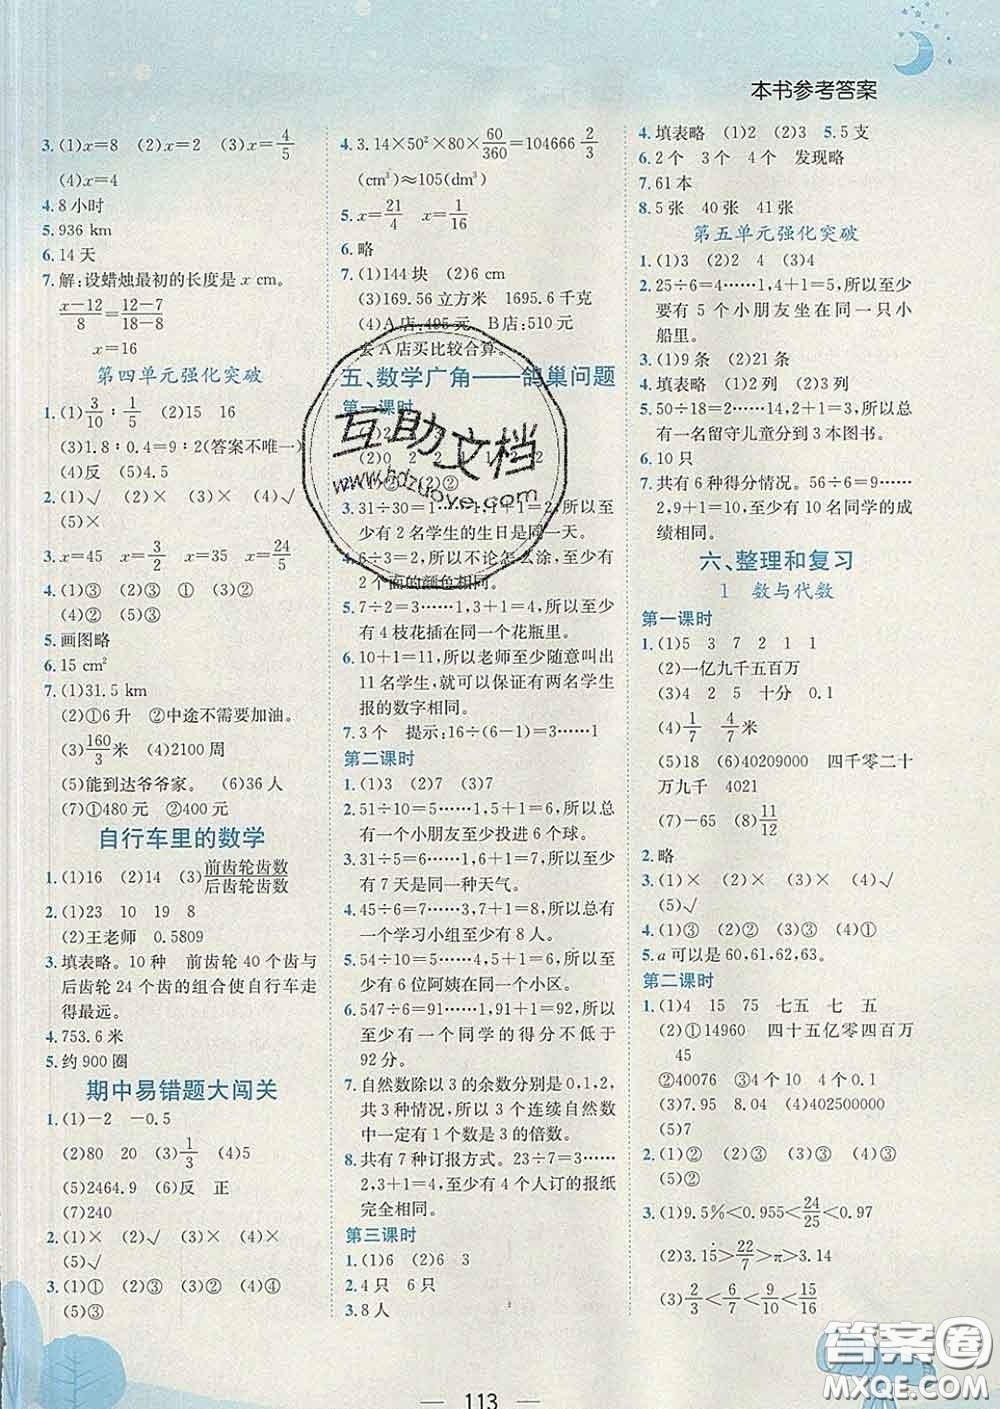 本书参考答案
3.(1)x=8 (2)x=2 (3)x=4/5
(4)x=4
4.8小时
5.936 km
6.14天
7.解:设蜡烛最初的长度是 x cm。
(x-12)/8=(12-7)/(18-8)
x=16
第四单元强化突破
1.(1)3/10∶1/5 (2)15 16
(3)1.8∶0.4=9∶2(答案不唯一)
(4)反 (5)4.5
2.(1)√ (2)× (3)√ (4)√
(5)×
3.x=45 x=3/2 x=35 x=24/5
4.(1)③ (2)③ ① (3)②
(4)② (5)③
5.画图略
6.15 cm²
7.(1)31.5 km
(2)①6升 ②中途不需要加油。
(3)160/3米 (4)2100 周
(5)能到达爷爷家。 (6)36人
(7)①480元 ②400元
自行车里的数学
1.(1)16 (2)14 (3)前齿轮齿数/后齿轮齿数
2.(1)23 10 19 8
(2)王老师 0.5809
3.填表略。10种 前齿轮40个齿与
后齿轮24个齿的组合使自行车走
得最远。
4.753.6米
5.约900圈
期中易错题大闯关
1.(1)-2 -0.5
(2)80 20 (3)1/3 (4)5
(5)2464.9 (6)反 正
(7)240
2.(1)× (2)√ (3)× (4)×
(5)√
3.(1)① (2)③ (3)② (4)④
(5)③
4.3.14×50²×80×60/360=104666 2/3
(cm³)≈105(dm³)
5.x=21/4 x=1/16
6.略
7.(1)144块 (2)6 cm
(3)169.56立方米 1695.6千克
(4)A店:495元 B店:510元
去A店买比较合算。
五、数学广角——鸽巢问题
第一课时
3.31÷30=1……1,1+1=2,所以至
少有2名学生的生日是同一天。
4.6÷3=2,所以不论怎么涂,至少有
2个面的颜色相同。
5.7÷2=3……1,3+1=4,所以至少
有4枝花插在同一个花瓶里。
6.10+1=11,所以老师至少随意叫出
11名学生,就可以保证有两名学生
报的数字相同。
7.3个 提示:16÷(6-1)=3……1
第二课时
1.(1)3 (2)7 (3)7
2.51÷10=5……1,5+1=6,所以总
有一个小朋友至少投进6个球。
3.31÷5=6……1,6+1=7,所以至少
有7天是同一种天气。
4.45÷6=7……3,7+1=8,所以总有
一个学习小组至少有8人。
5.54÷10=5……4,5+1=6,所以至
少有6位阿姨在同一个小区。
6.547÷6=91……1,91+1=92,所以
至少有一个同学的得分不低于
92分。
7.自然数除以3的余数分别是0,1,2,
共3种情况,所以3个连续自然数
中一定有1个数是3的倍数。
8.共有7种订报方式。23÷7=3……
2,3+1=4,至少有4个人订的报纸
完全相同。
第三课时
1.(1)6 (2)6 3
2.4只 6只
3.8人
4.填表略 (1)2 (2)3 5.5支
6.2个 3个 4个 发现略
7.61本
8.5张 40张 41张
第五单元强化突破
1.(1)3 (2)2 (3)4
2.25÷6=4……1,4+1=5,所以至少
要有5个小朋友坐在同一只小
船里。
3.(1)9条 (2)21条
4.填表略 (1)2列 (2)2列
5.50÷18=2……14,2+1=3,所以
总有一名留守儿童分到3本图书。
6.10只
7.共有6种得分情况。56÷6=9……
2,9+1=10,至少有10名同学的成
绩相同。
六、整理和复习
1 数与代数
第一课时
1.(1)5 3 7 2 1 1
(2)一亿九千五百万
(3)4 2 5 十分 0.1
(4)1/7 4/7米
(5)18 (6)40209000 四千零二十
万九千 4021
(7)-65 (8)11/12
2.略
3.(1)× (2)× (3)× (4)√
(5)√
4.(1)③ (2)③ (3)② (4)①
5.a可以是60,61,62,63。
第二课时
1.(1)4 15 75 七五 七 五
(2)①14960 四十五亿零四百万
45
②40076 ③4076 40076
(3)7.95 8.04 (4)402500000
(5)7
2.(1)② (2)③ (3)① (4)②
(5)②
3.(1)9.5%<0.955<24/25<0.97
(2)3.1̇5̇>22/7>π>3.14
(3)2/3<6/7<9/10<15/16
互助文档
www.hdzuoye.com
答案圈
MXQE.COM
113